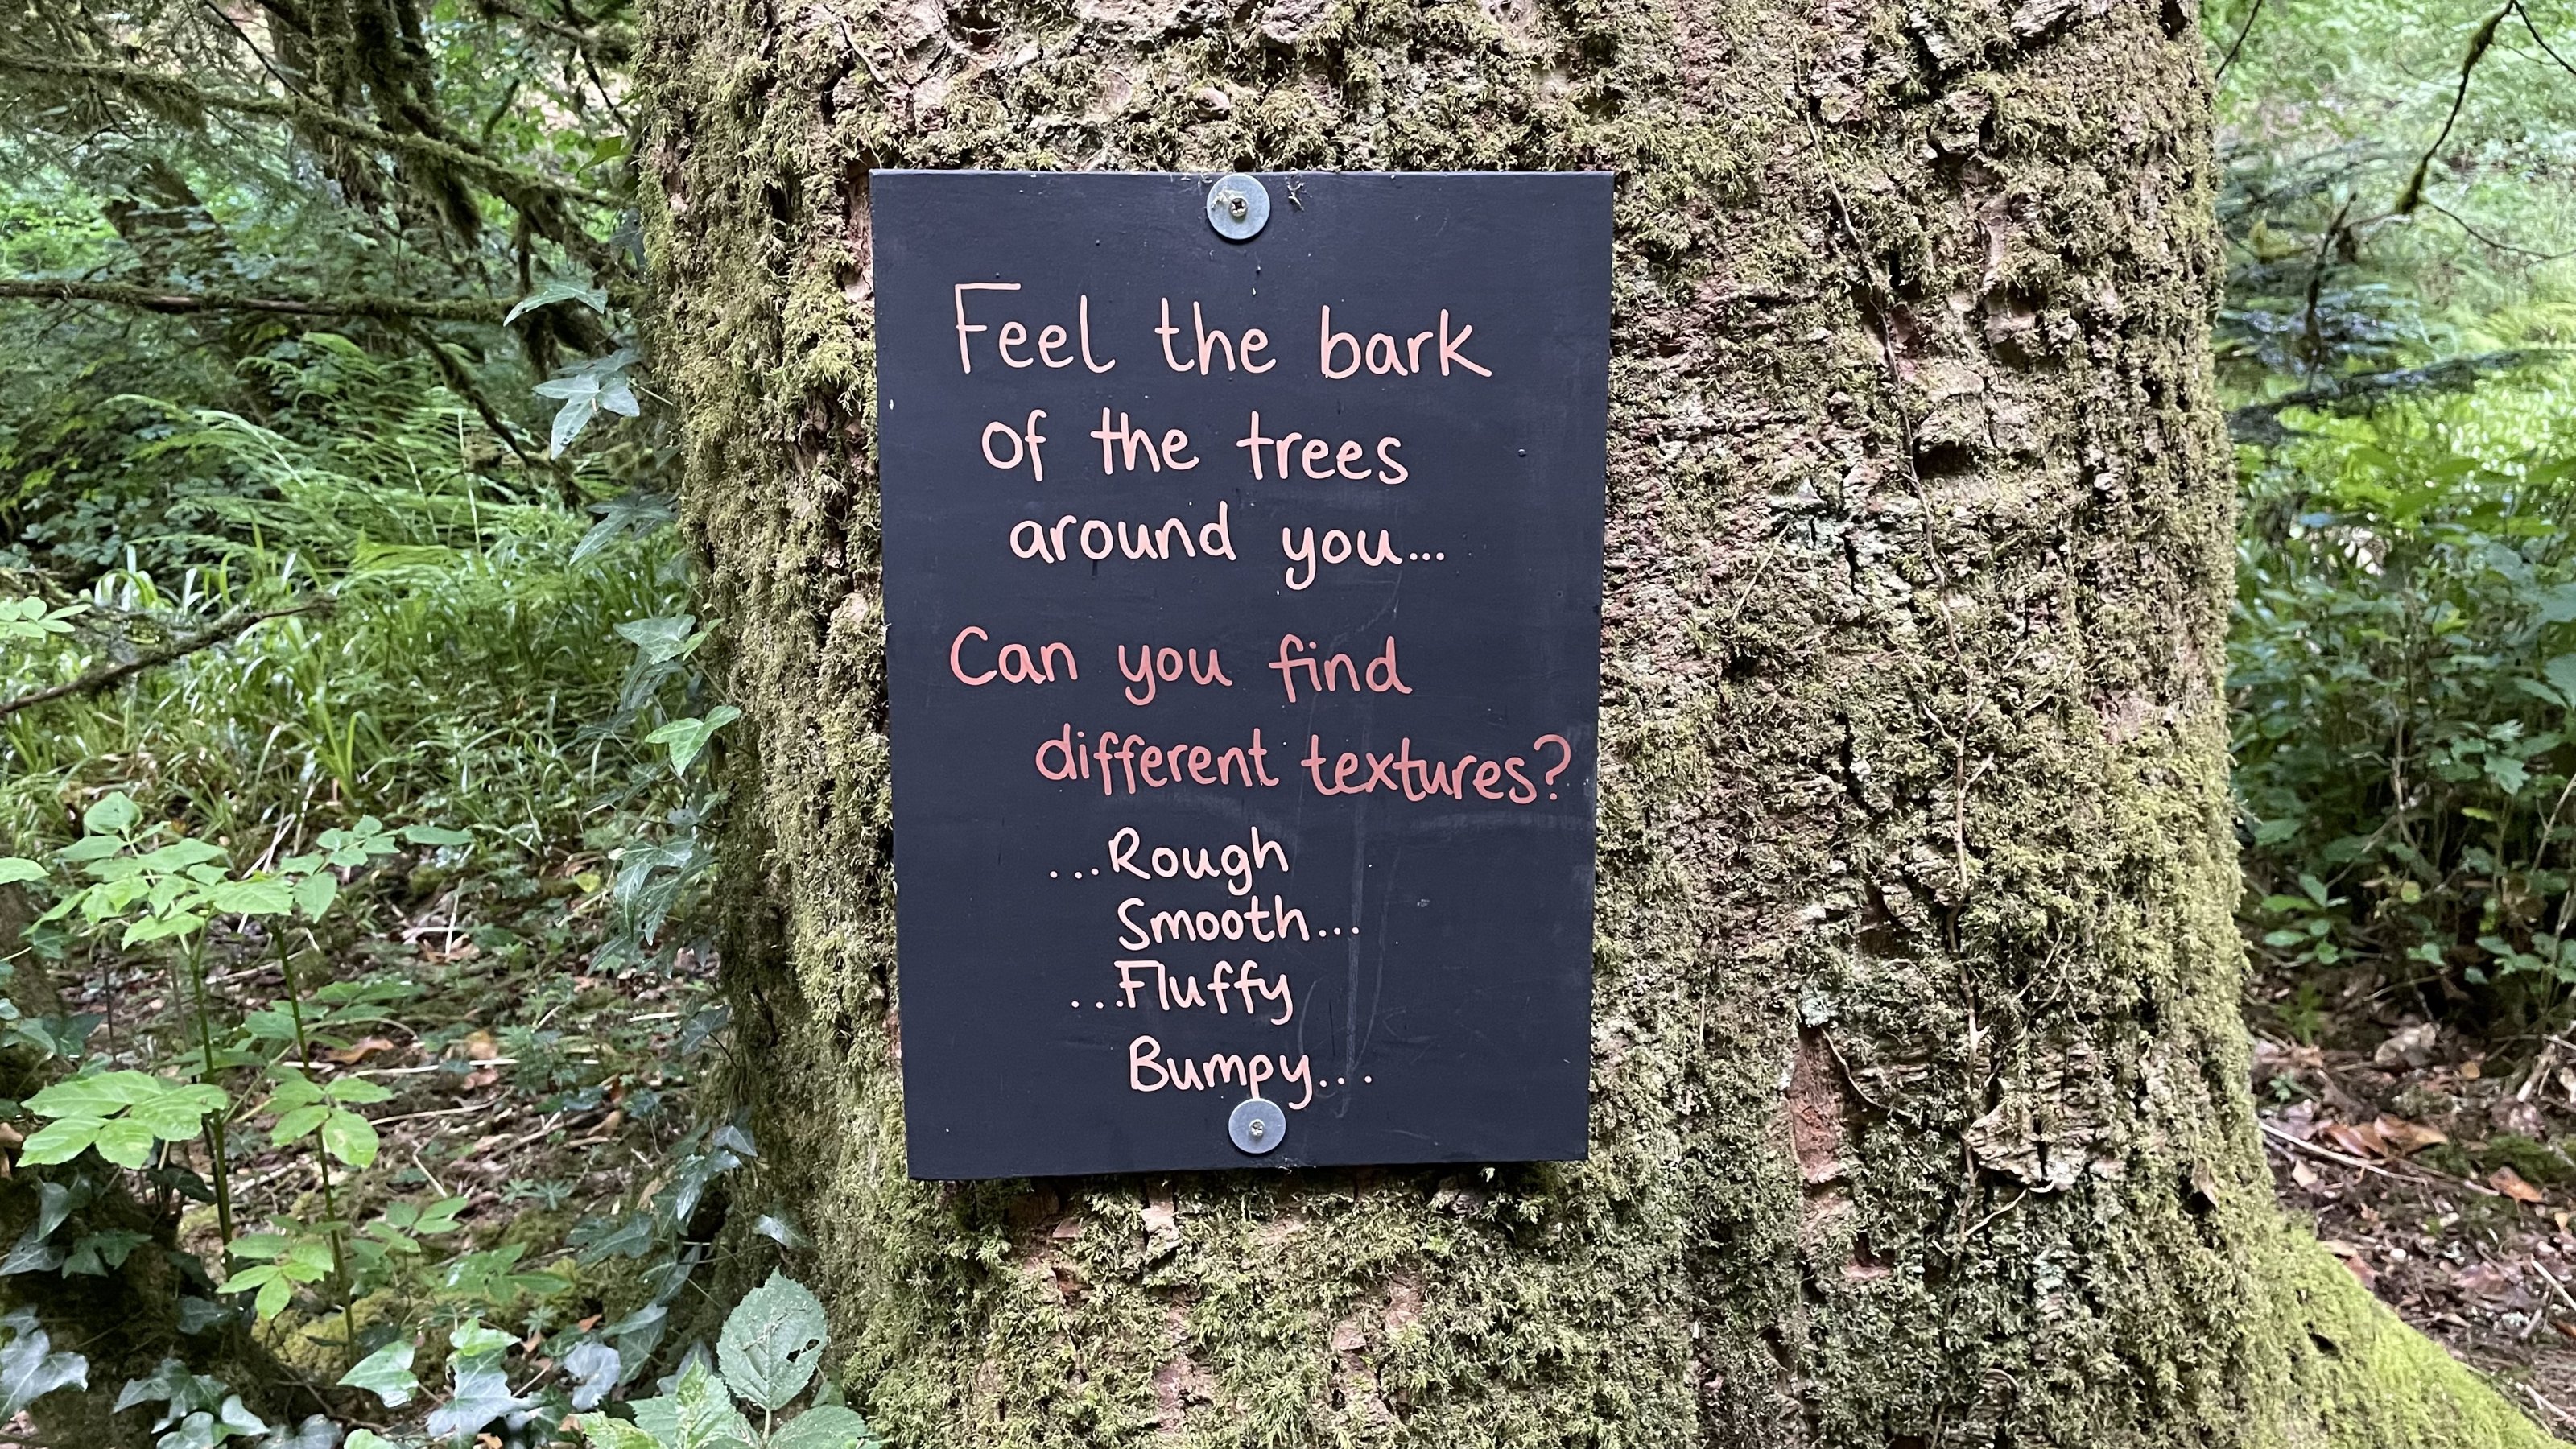 Feel the bark
of the trees
around you...
Can you find
different textures?
...Rough
Smooth...
...Fluffy
Bumpy...